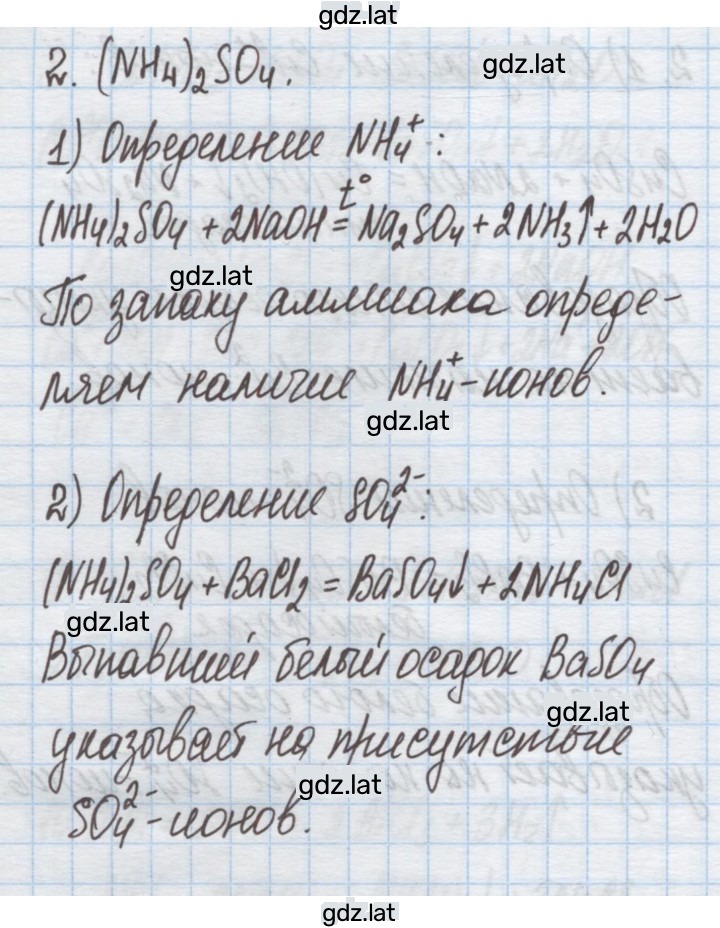 gdz.lat
2. (NH₄)₂SO₄.
gdz.lat
1) Определение NH₄⁺:
(NH₄)₂SO₄ + 2NaOH =t° Na₂SO₄ + 2NH₃↑ + 2H₂O
gdz.lat
По запаху аммиака опреде-
ляем наличие NH₄⁺-ионов.
gdz.lat
2) Определение SO₄²⁻:
(NH₄)₂SO₄ + BaCl₂ = BaSO₄↓ + 2NH₄Cl
gdz.lat
Выпавший белый осадок BaSO₄
gdz.lat
указывает на присутствие
gdz.lat
SO₄²⁻-ионов.
gdz.lat